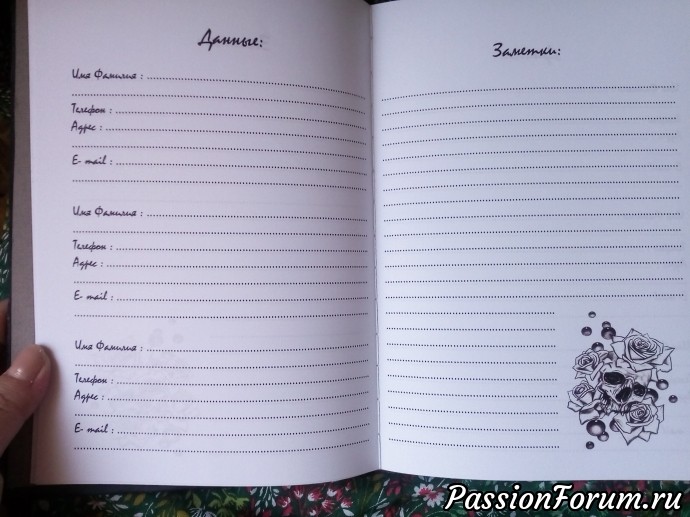 Данные:
Имя Фамилия :
Телефон :
Адрес :
E- mail :
Имя Фамилия :
Телефон :
Адрес :
E- mail :
Имя Фамилия :
Телефон :
Адрес :
E- mail :
Заметки:
PassionForum.ru